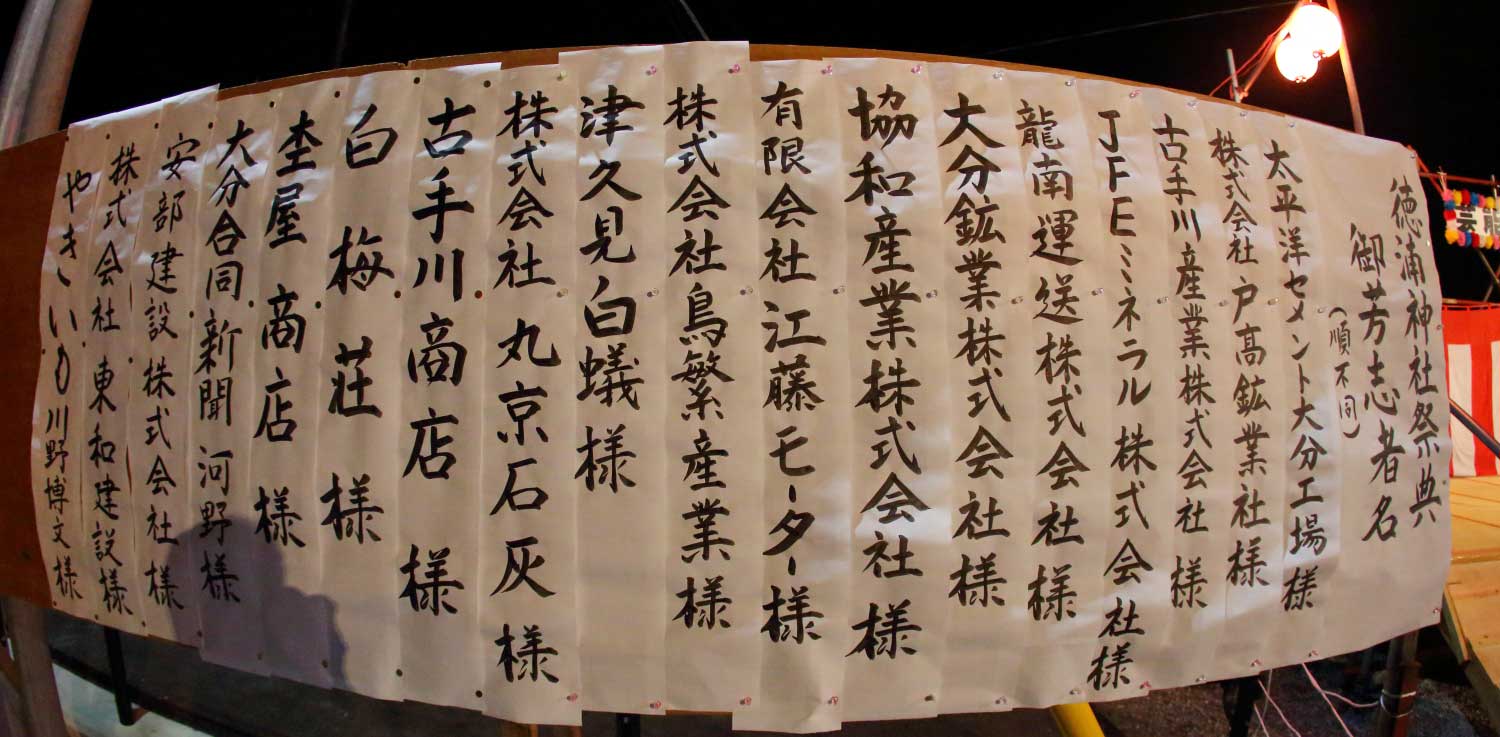 徳浦神社祭典
御芳志者名
(順不同)
太平洋セメント大分工場様
株式会社戸高鉱業社様
古手川産業株式会社様
JFEミネラル株式会社様
龍南運送株式会社様
大分鉱業株式会社様
協和産業株式会社様
有限会社江藤モーター様
株式会社鳥繁産業様
津久見白蟻様
株式会社丸京石灰様
古手川商店様
白梅荘様
杢屋商店様
大分合同新聞河野様
安部建設株式会社様
株式会社東和建設様
やきいも川野博文様
芸能